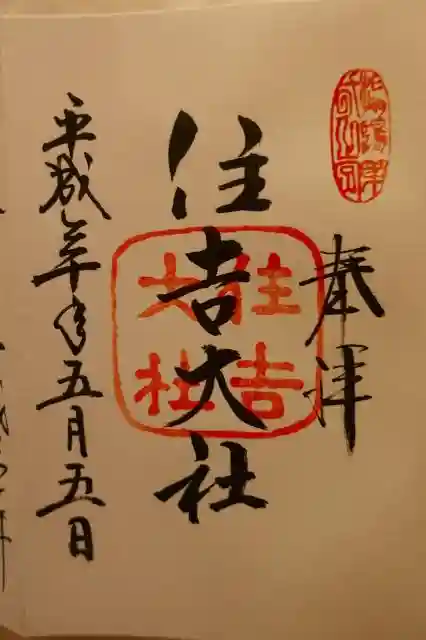 奉拝
住吉大社
住吉
大社
平成年五月五日